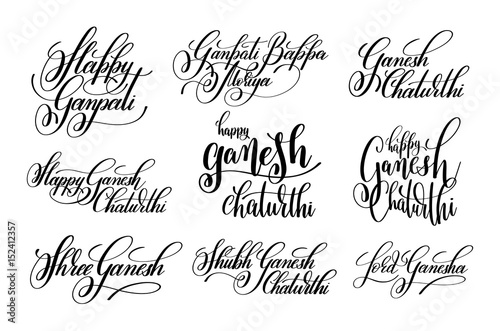 Happy
Ganpati
Ganpati Bappa
Moriya
Ganesh
Chaturthi
Happy Ganesh
Chaturthi
happy
ganesh
chaturthi
happy
Ganesh
Chaturthi
Shree Ganesh
Shubh Ganesh
Chaturthi
Lord Ganesha
152412357